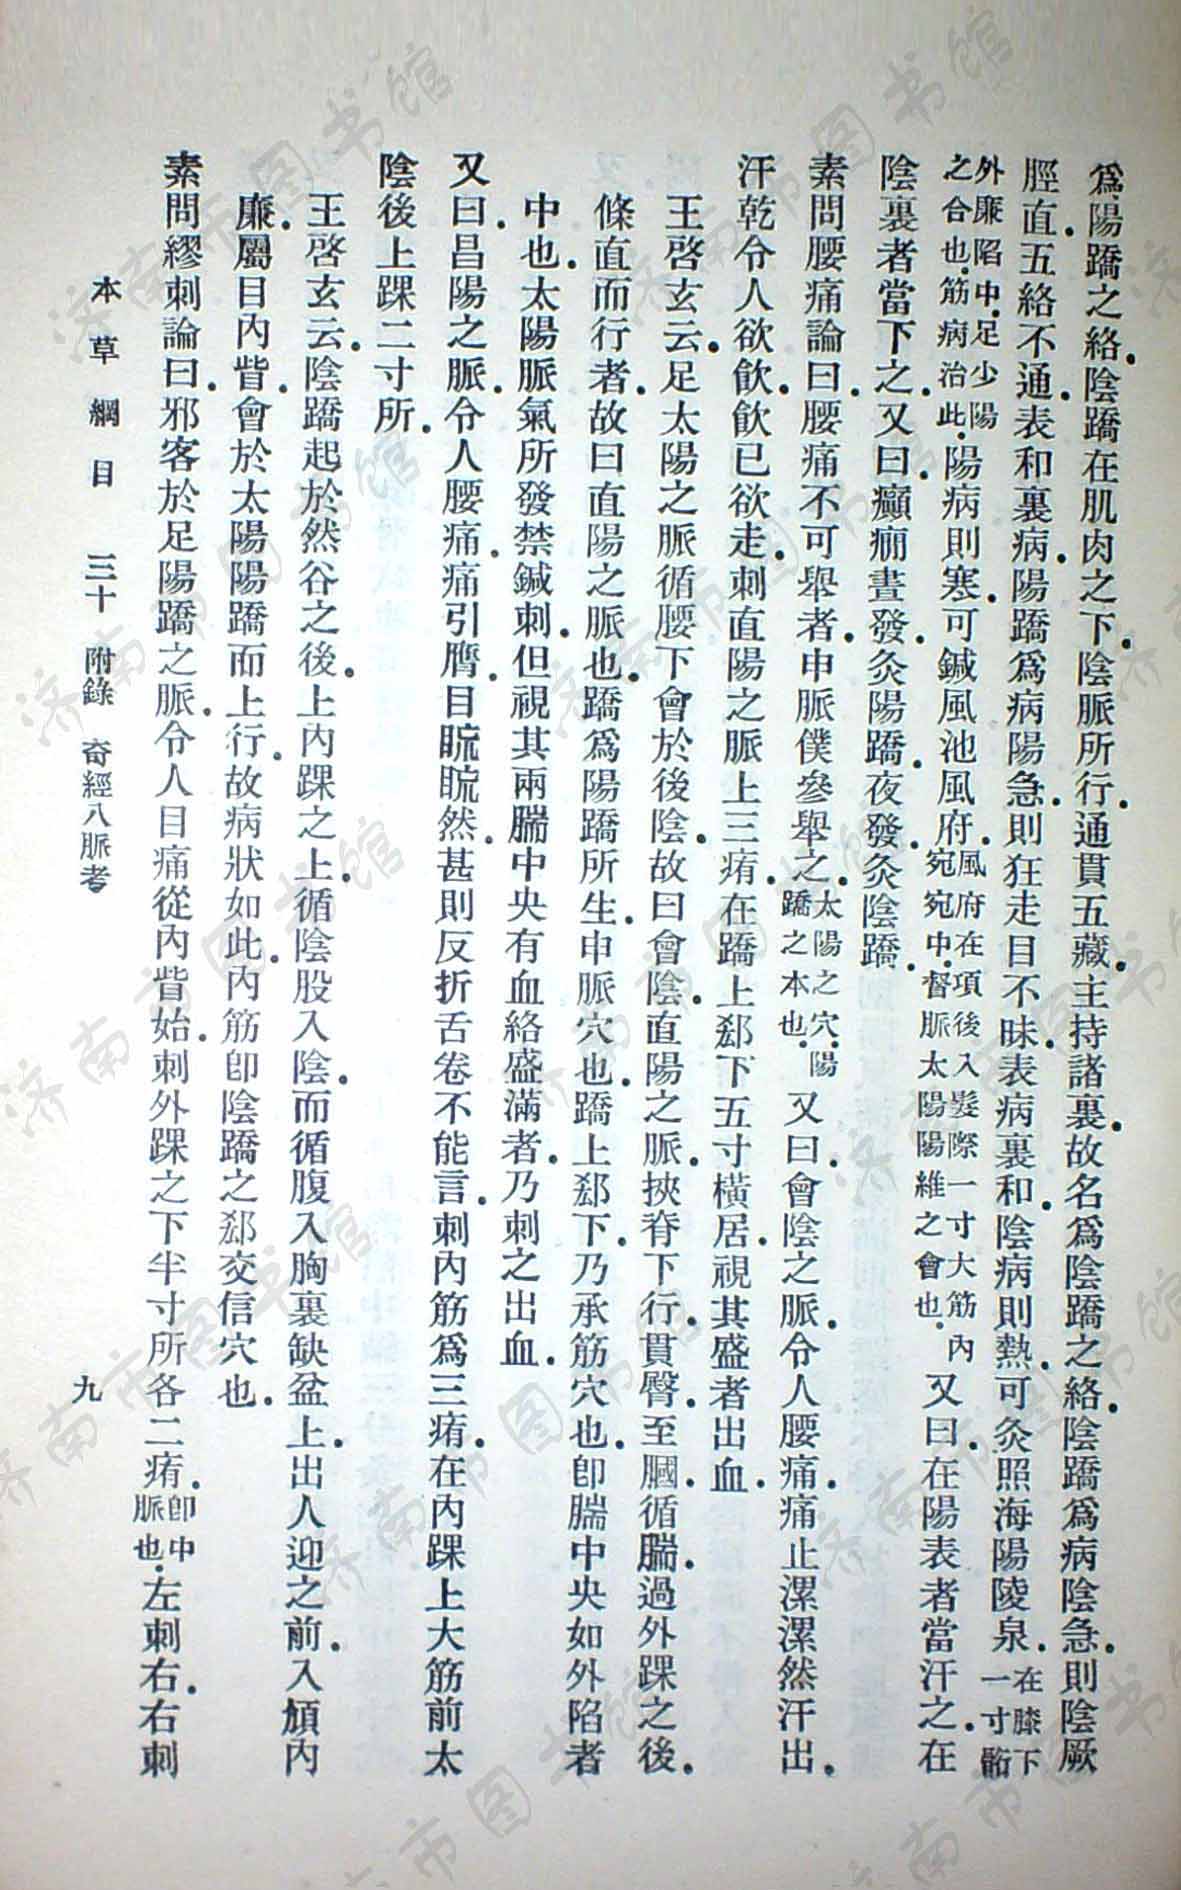 爲陽蹻之絡.陰蹻在肌肉之下.陰脈所行.通貫五藏.主持諸裏.故名爲陰蹻之絡.陰蹻爲病陰急.則陰厥
脛直.五絡不通.表和裏病.陽蹻爲病陽急.則狂走目不昧.表病裏和.陰病則熱.可灸照海陽陵泉.在膝下一寸䯒
外廉陷中.足少陽之合也.筋病治此.陽病則寒.可鍼風池風府.風府在項後入髮際一寸大筋內宛宛中.督脈太陽陽維之會也.又曰.在陽表者當汗之.在
陰裏者當下之.又曰.癲癎晝發.灸陽蹻.夜發.灸陰蹻.
素問腰痛論曰.腰痛不可舉者.申脈僕參舉之.太陽之穴.陽蹻之本也.又曰.會陰之脈.令人腰痛.痛止漯漯然汗出.
汗乾令人欲飮.飮已欲走.刺直陽之脈上三痏.在蹻上郄下五寸橫居.視其盛者出血.
王啓玄云.足太陽之脈循腰下會於後陰.故曰會陰.直陽之脈.挾脊下行.貫臀.至膕.循腨.過外踝之後.
條直而行者.故曰直陽之脈也.蹻爲陽蹻所生.申脈穴也.蹻上郄下.乃承筋穴也.卽腨中央如外陷者
中也.太陽脈氣所發.禁鍼刺.但視其兩腨中央有血絡盛滿者.乃刺之出血.
又曰.昌陽之脈.令人腰痛.痛引膺.目䀮䀮然.甚則反折舌卷不能言.刺內筋爲三痏.在內踝上大筋前太
陰後上踝二寸所.
王啓玄云.陰蹻起於然谷之後.上內踝之上.循陰股入陰.而循腹入胸裏缺盆.上出人迎之前.入頄內
廉.屬目內眥.會於太陽陽蹻而上行.故病狀如此.內筋卽陰蹻之郄交信穴也.
素問繆刺論曰.邪客於足陽蹻之脈.令人目痛從內眥始.刺外踝之下半寸所各二痏.卽申脈也.左刺右.右刺
本草綱目 三十 附錄 奇經八脈考
九
济南市图书馆